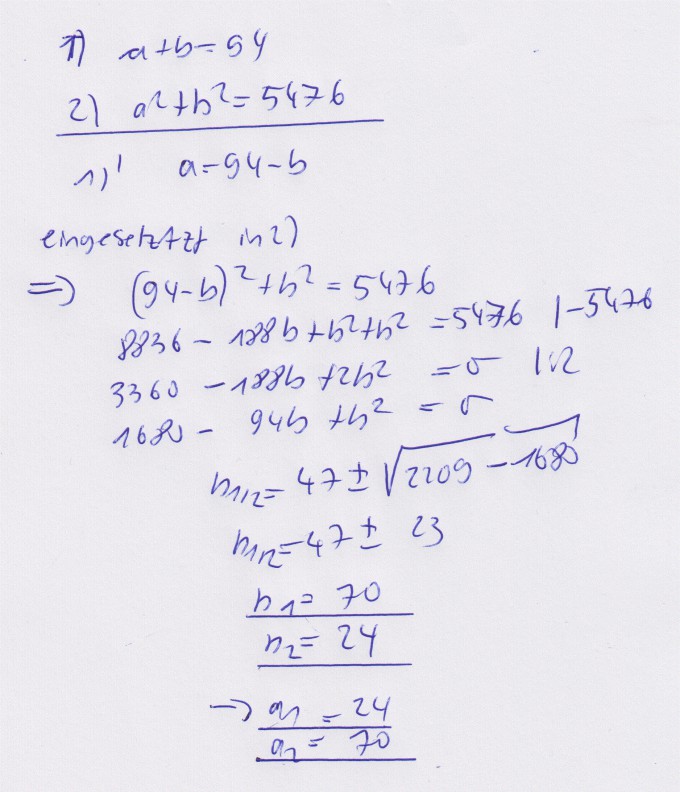 1) a+b=94
2) a²+b²=5476
1)' a=94-b
eingesetzt in 2)
=> (94-b)²+b²=5476
8836-188b+b²+b²=5476 |-5476
3360-188b+2b²=0 |:2
1680-94b+b²=0
b1/2=47±√2209-1680
b1/2=47±23
b1=70
b2=24
-> a1=24
a2=70